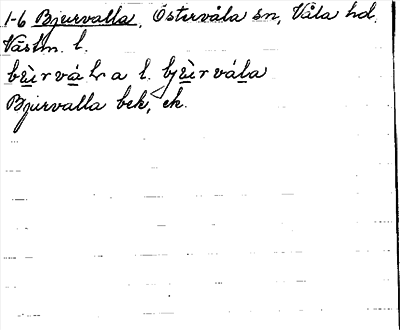 1-6 Bjurvalla, Östervåla sn, Våla hd.
Västm. l.
l. bjùrvála
Bjurvalla bek, ek.